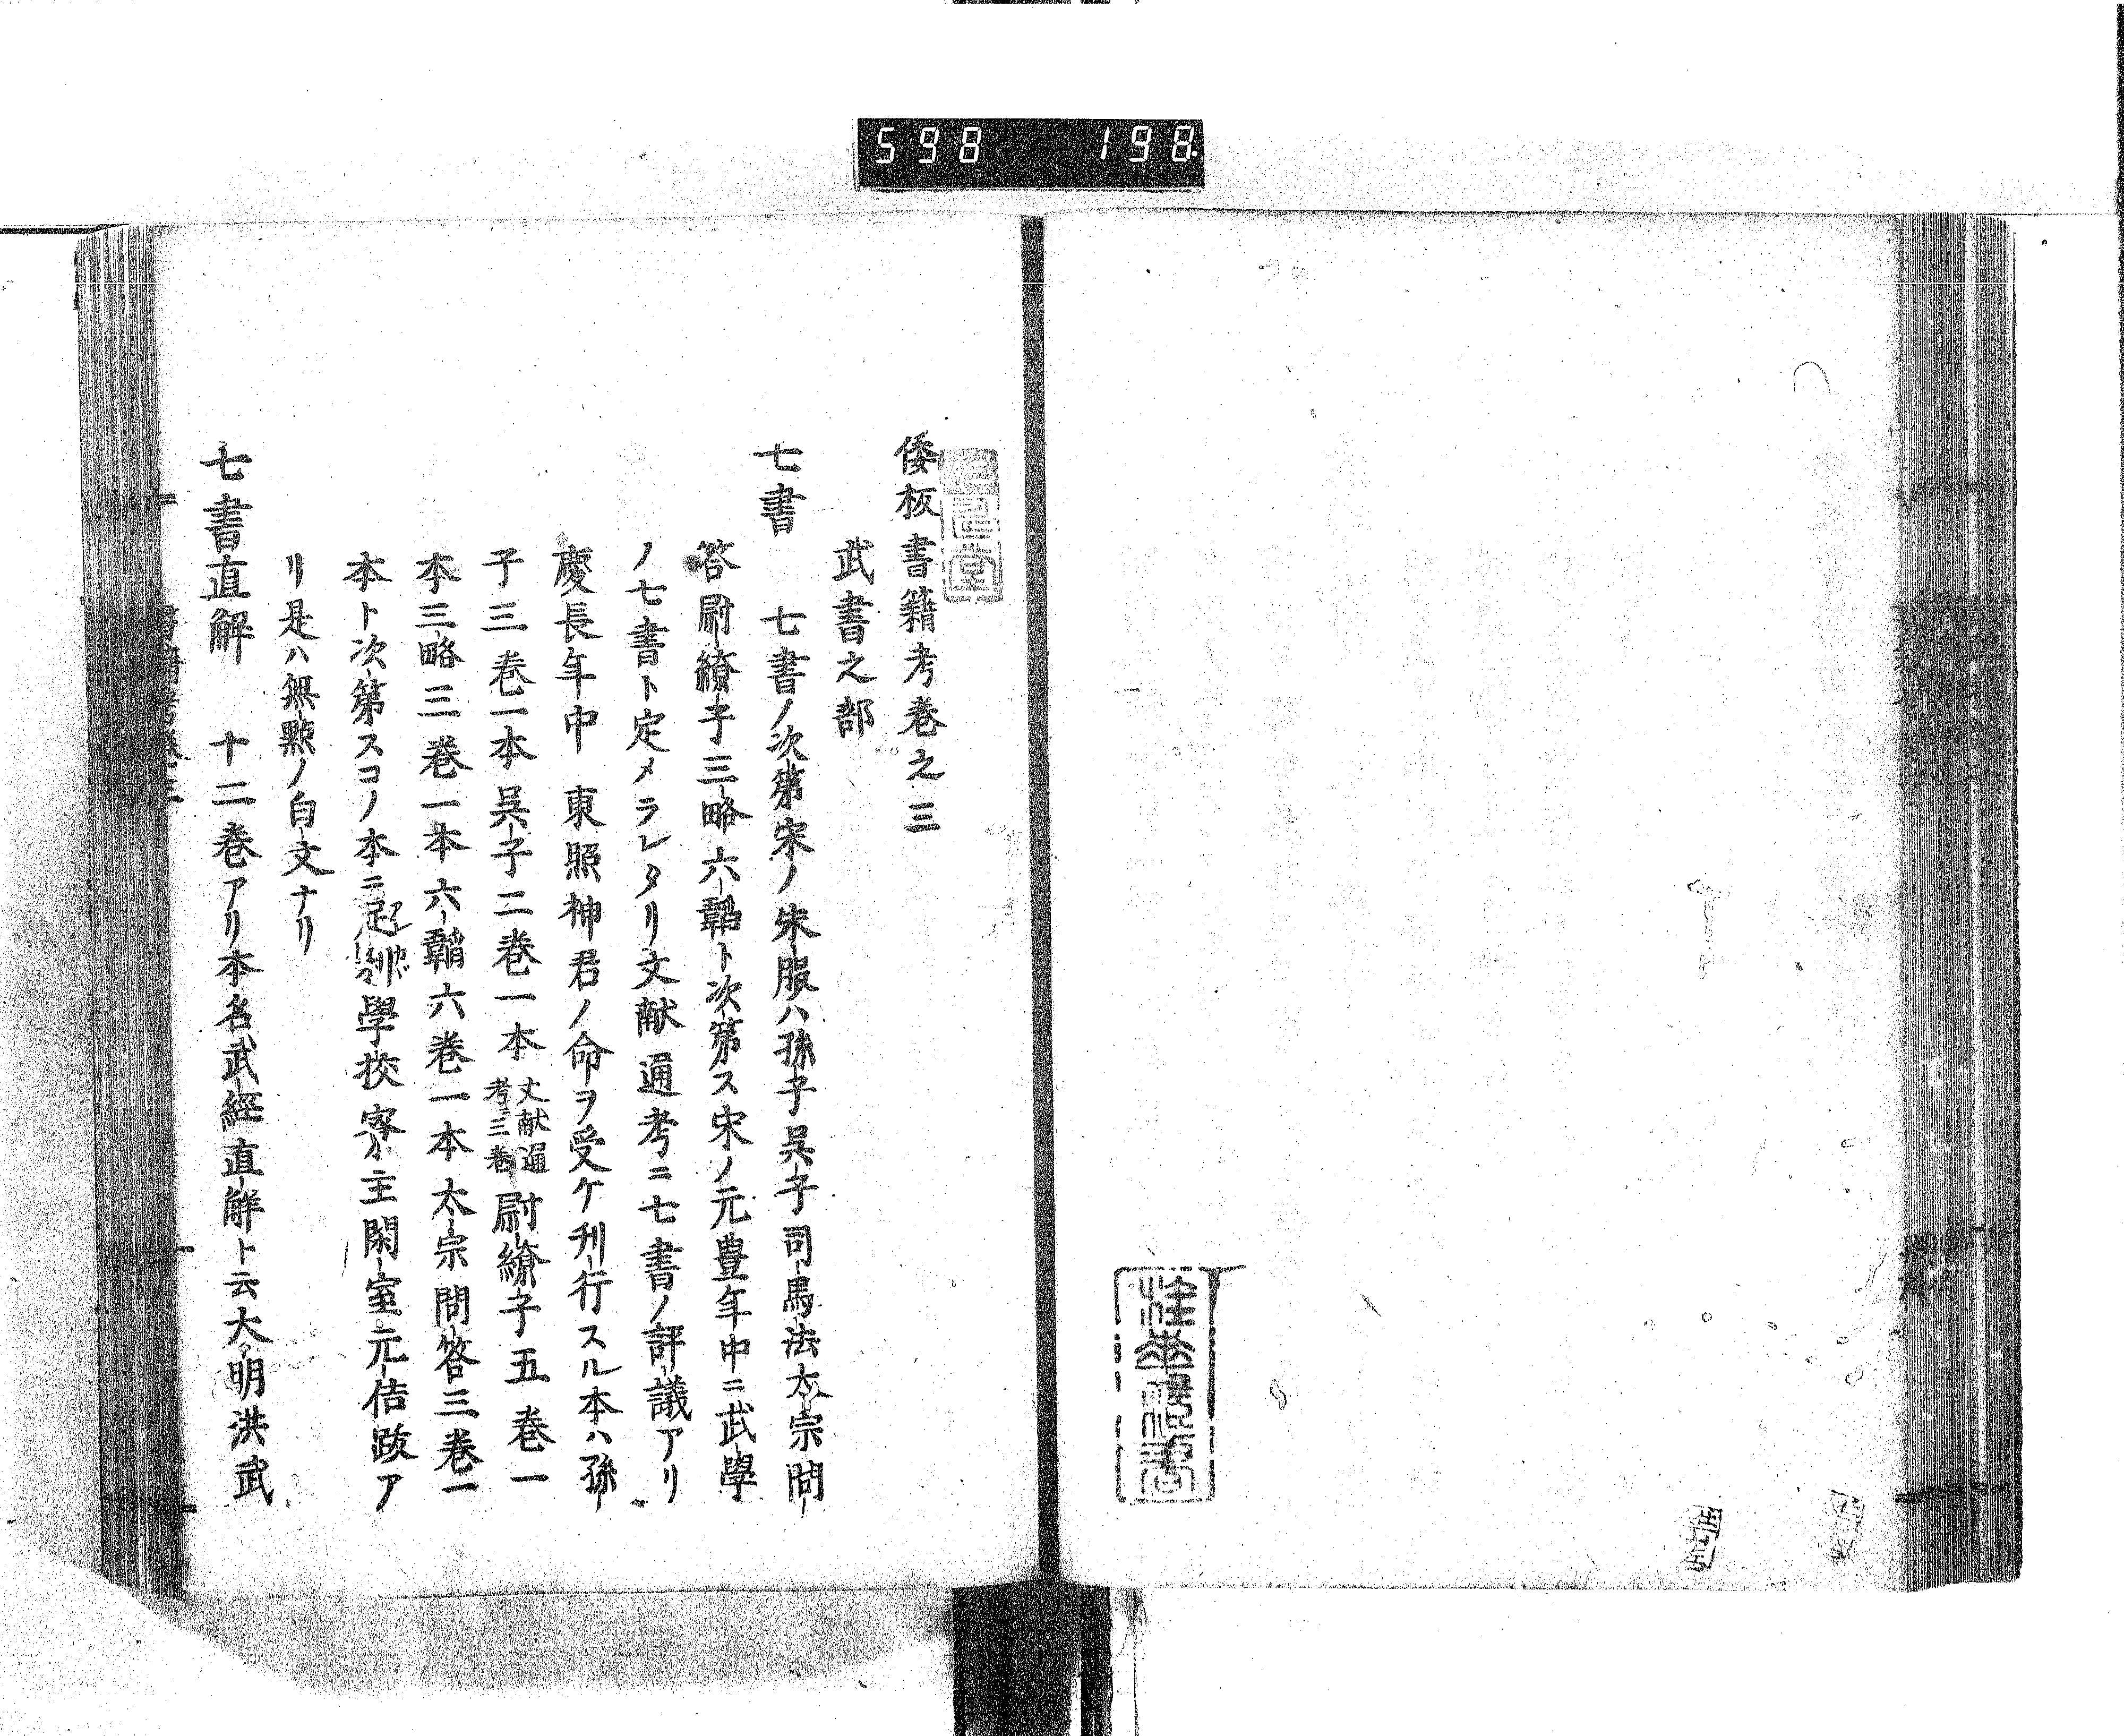 598 198
倭板書籍考巻之三
武書之部
七書 七書ノ次第宋ノ朱服ハ孫子呉子司馬法太宗問
答尉繚子三略六韜ト次第ス宋ノ元豊年中ニ武學
ノ七書ト定メラレタリ文献通考ニ七書ノ評議アリ
慶長年中 東照神君ノ命ヲ受ケ刊行スル本ハ孫
子三巻一本呉子二巻一本 文献通考三巻 尉繚子五巻一
本三略三巻一本六韜六巻一本太宗問答三巻一
本ト次第スコノ本ニ足利學挍寮主閑室元佶跋ア
リ是ハ無點ノ白文ナリ
七書直解 十二巻アリ本名武經直解ト云大明洪武
書籍考巻三